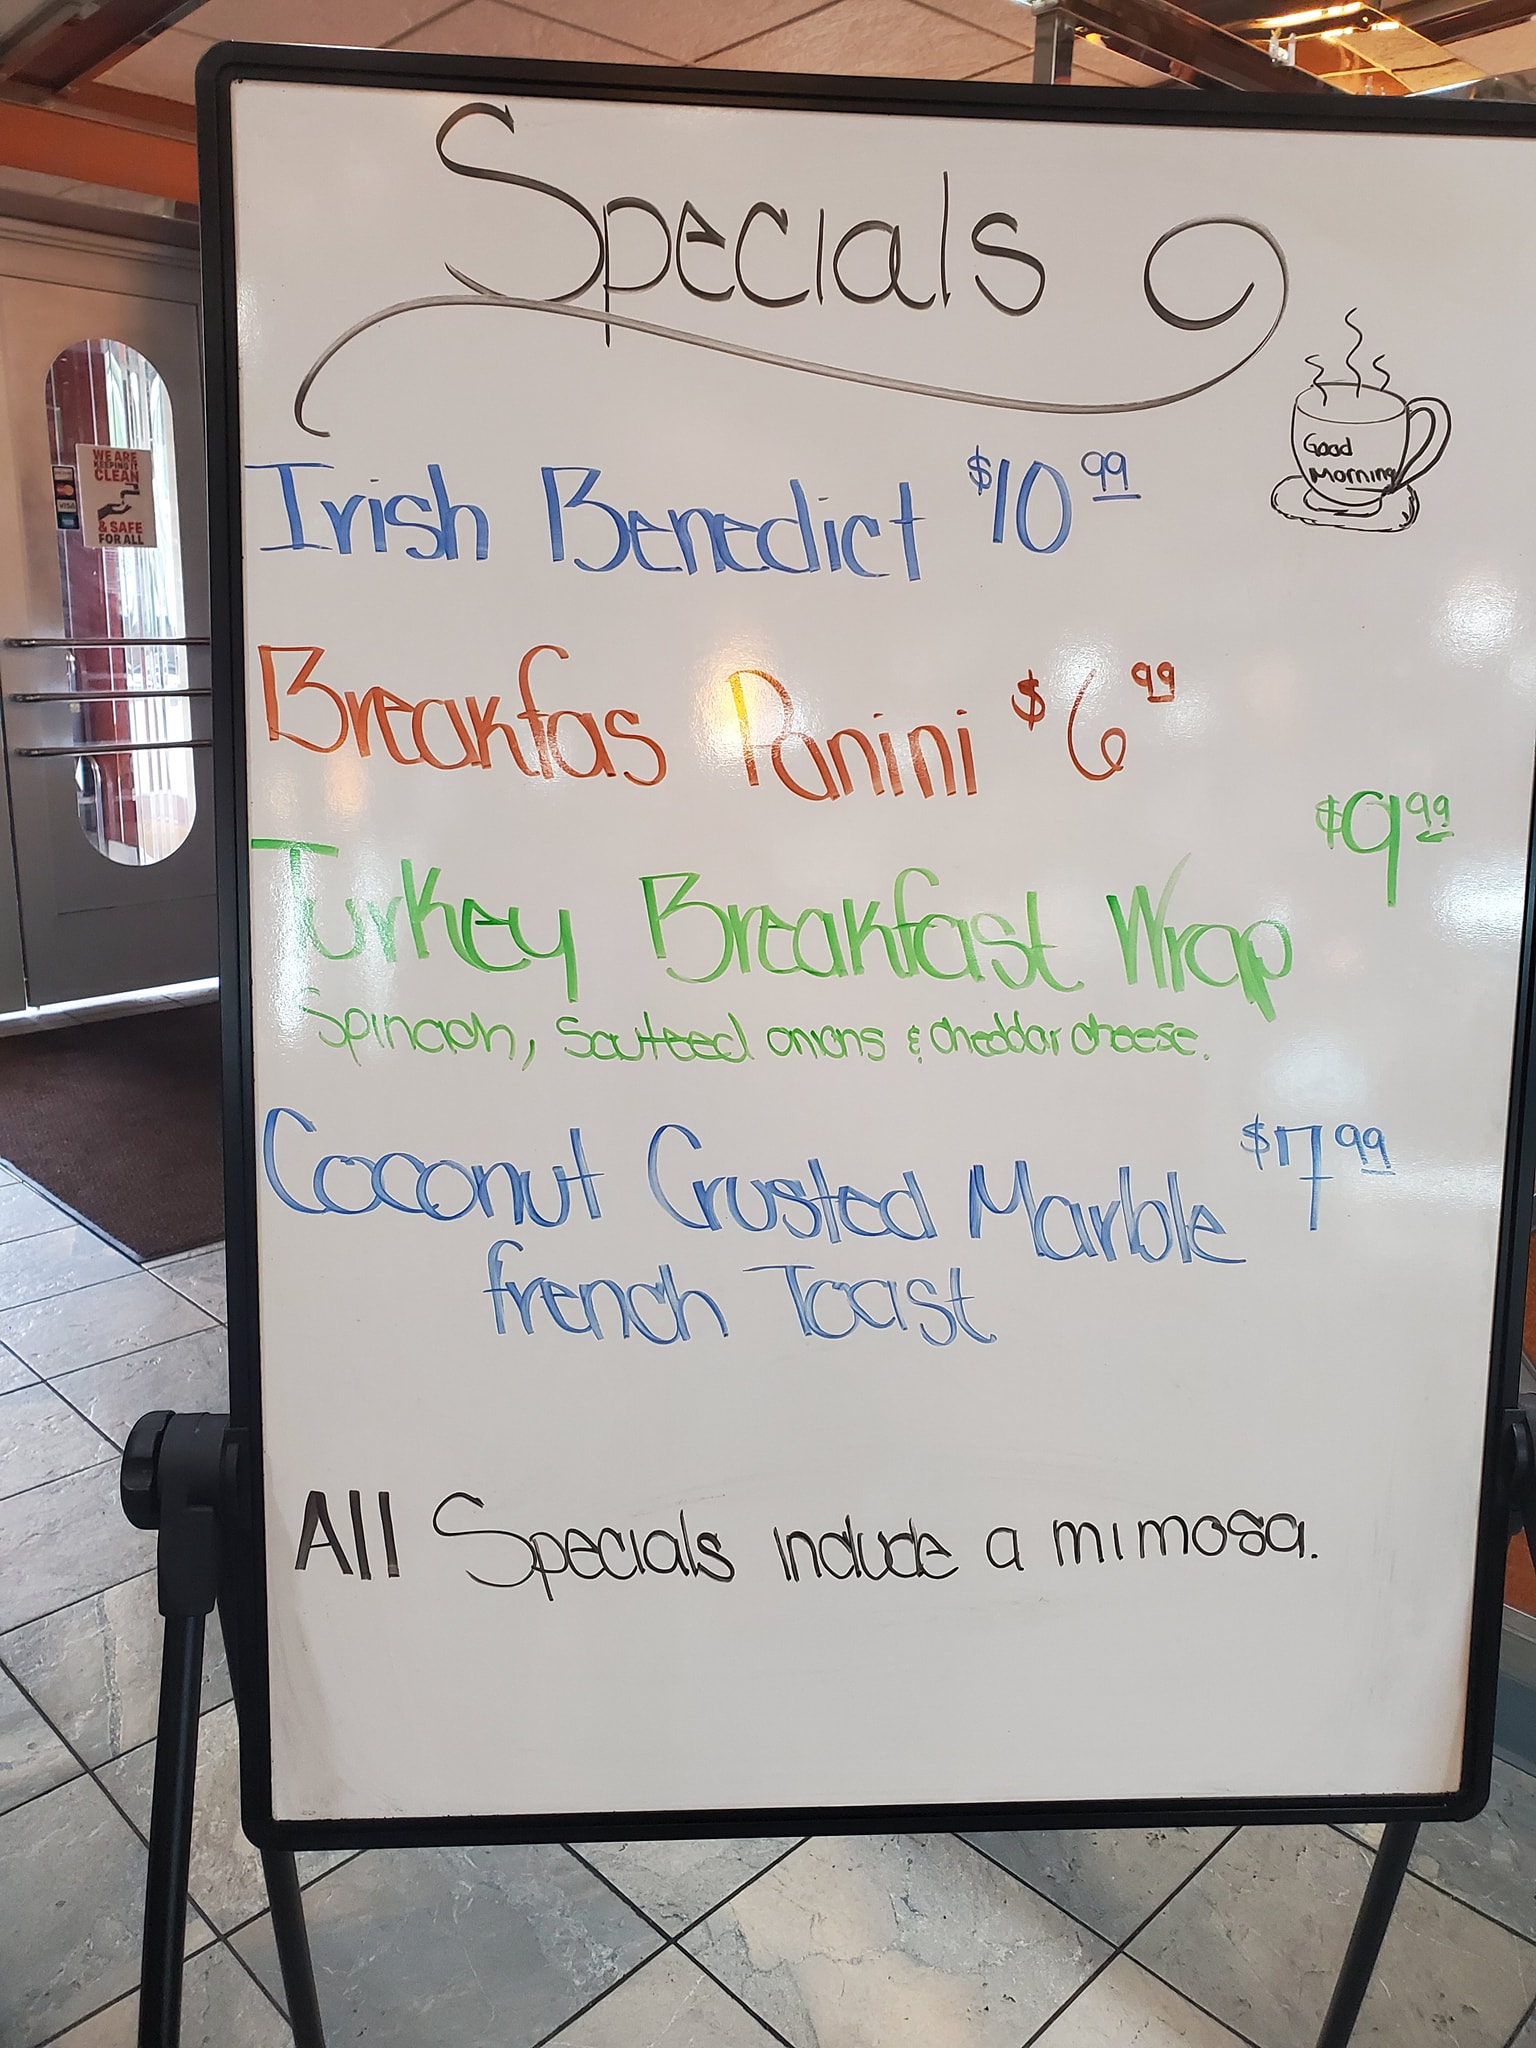 Specials
Good
Morning
Irish Benedict $10 99
Breakfas Panini $6 99
$9 99
Turkey Breakfast Wrap
Spinach, Sauteed onions & cheddar cheese.
Coconut Crusted Marble $7 99
french Toast
All Specials include a mimosa.
WE ARE
KEEPING IT
CLEAN
& SAFE
FOR ALL
VISA